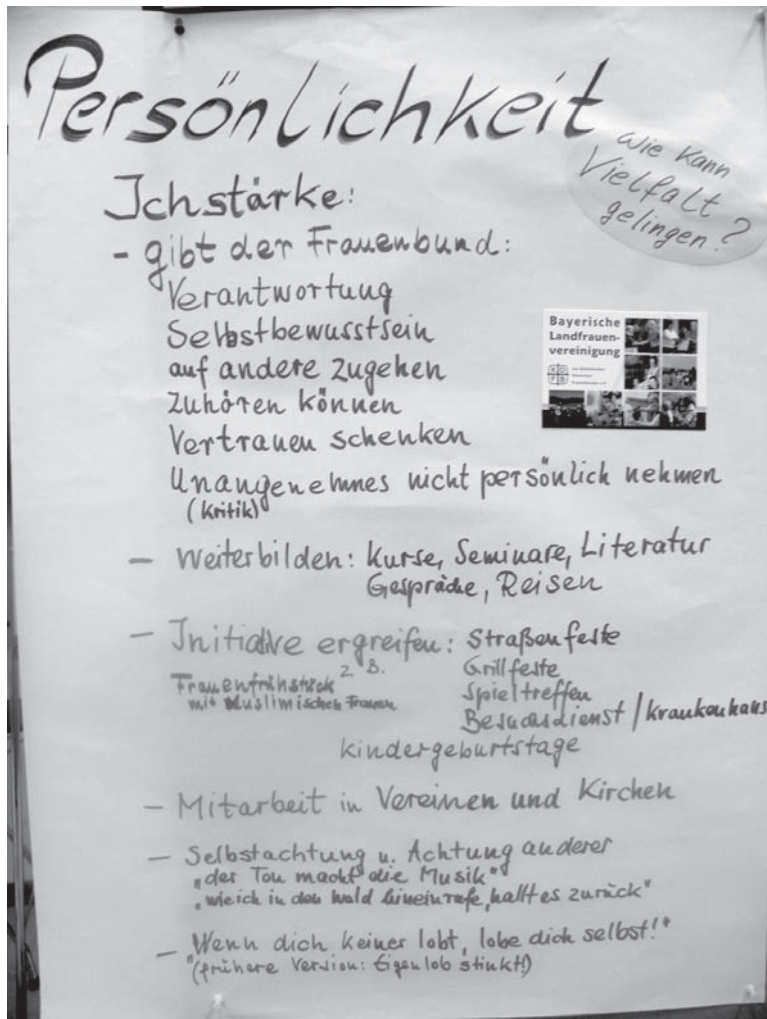 Persönlichkeit
Wie kann
Vielfalt
gelingen?
Ichstärke:
- gibt der Frauenbund:
Verantwortung
Selbstbewusstsein
auf andere zugehen
Zuhören können
Vertrauen schenken
Unangenehmes nicht persönlich nehmen
(Kritik)
Bayerische
Landfrauen-
vereinigung
- Weiterbilden: Kurse, Seminare, Literatur
Gespräche, Reisen
- Initiative ergreifen: Straßenfeste
z.B. Grillfeste
Frauenfrühstück Spieltreffen
mit muslimischen Frauen Besuchsdienst / Krankenhaus
Kindergeburtstage
- Mitarbeit in Vereinen und Kirchen
- Selbstachtung u. Achtung anderer
"der Ton macht die Musik"
"wie ich in den Wald hineinrufe, hallt es zurück"
- "Wenn dich keiner lobt, lobe dich selbst!"
(frühere Version: Eigenlob stinkt!)